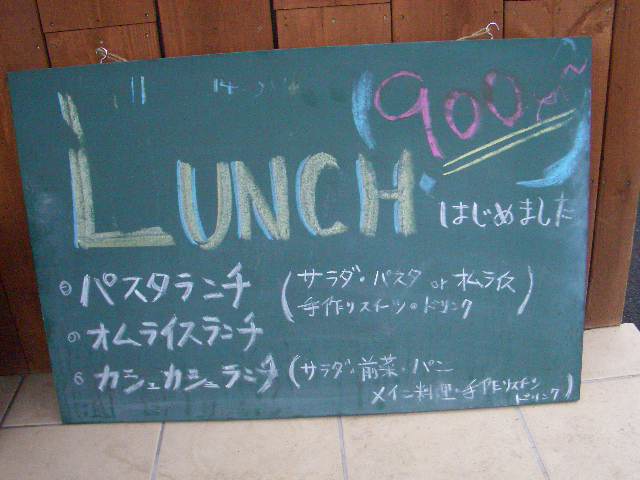 900yen~
LUNCH.
はじめました
パスタランチ (サラダ・パスタ or オムライス
手作りスイーツ・ドリンク)
オムライスランチ
カシェカシェランチ (サラダ・前菜・パン
メイン料理・手作りスイーツ
ドリンク)